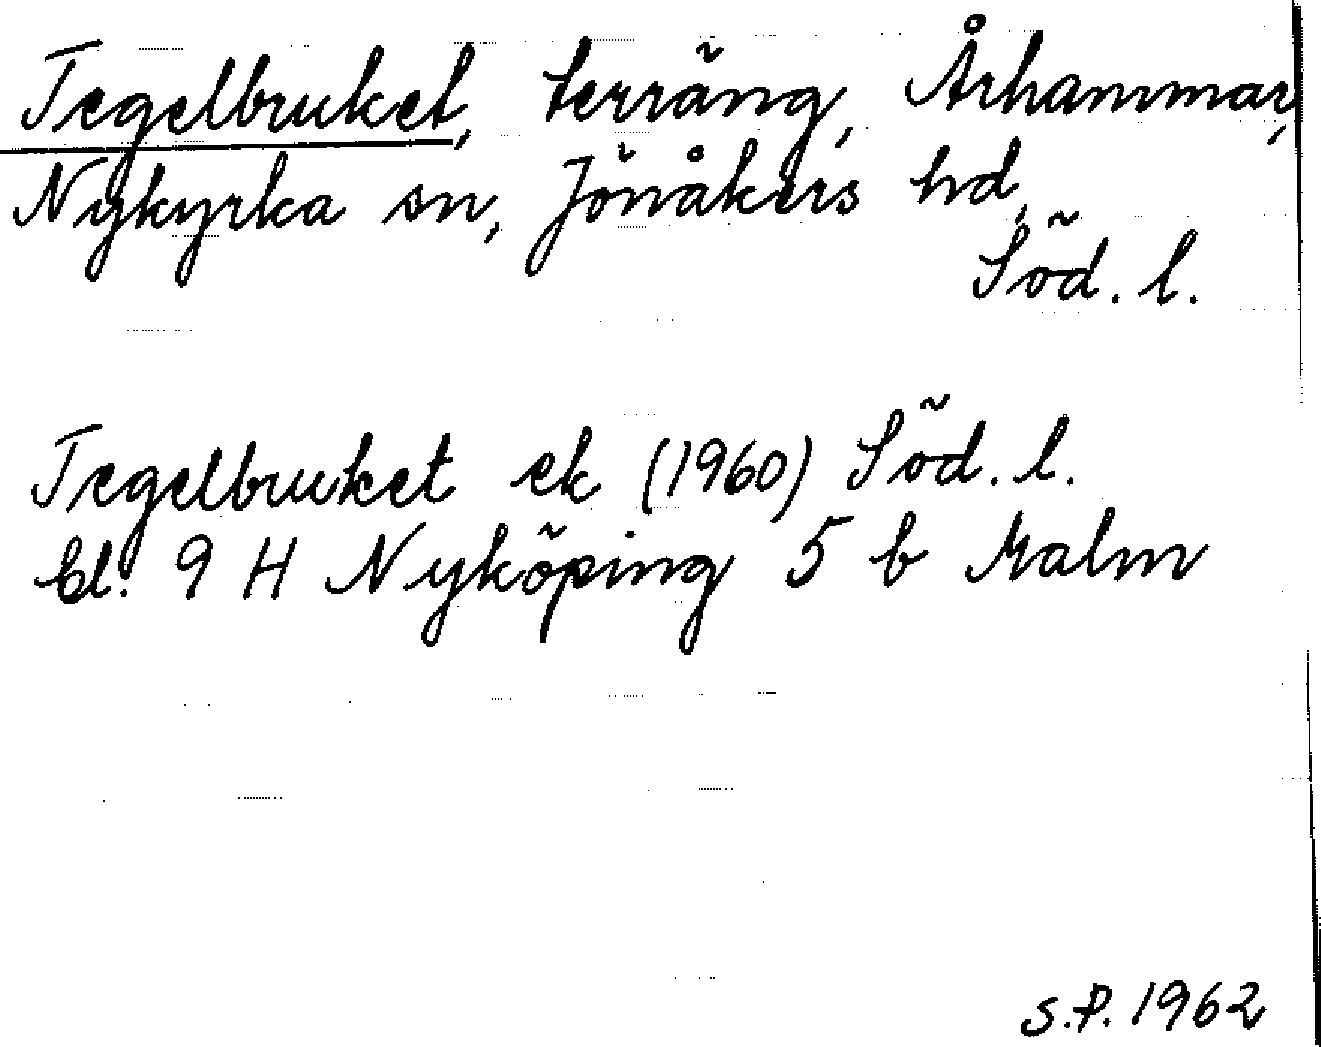 Tegelbruket, terräng, Århammar,
Nykyrka sn, Jönåkers hd,
Söd. l.
Tegelbruket ek (1960) Söd. l.
bl. 9 H Nyköping 5 b Malm
S.P. 1962